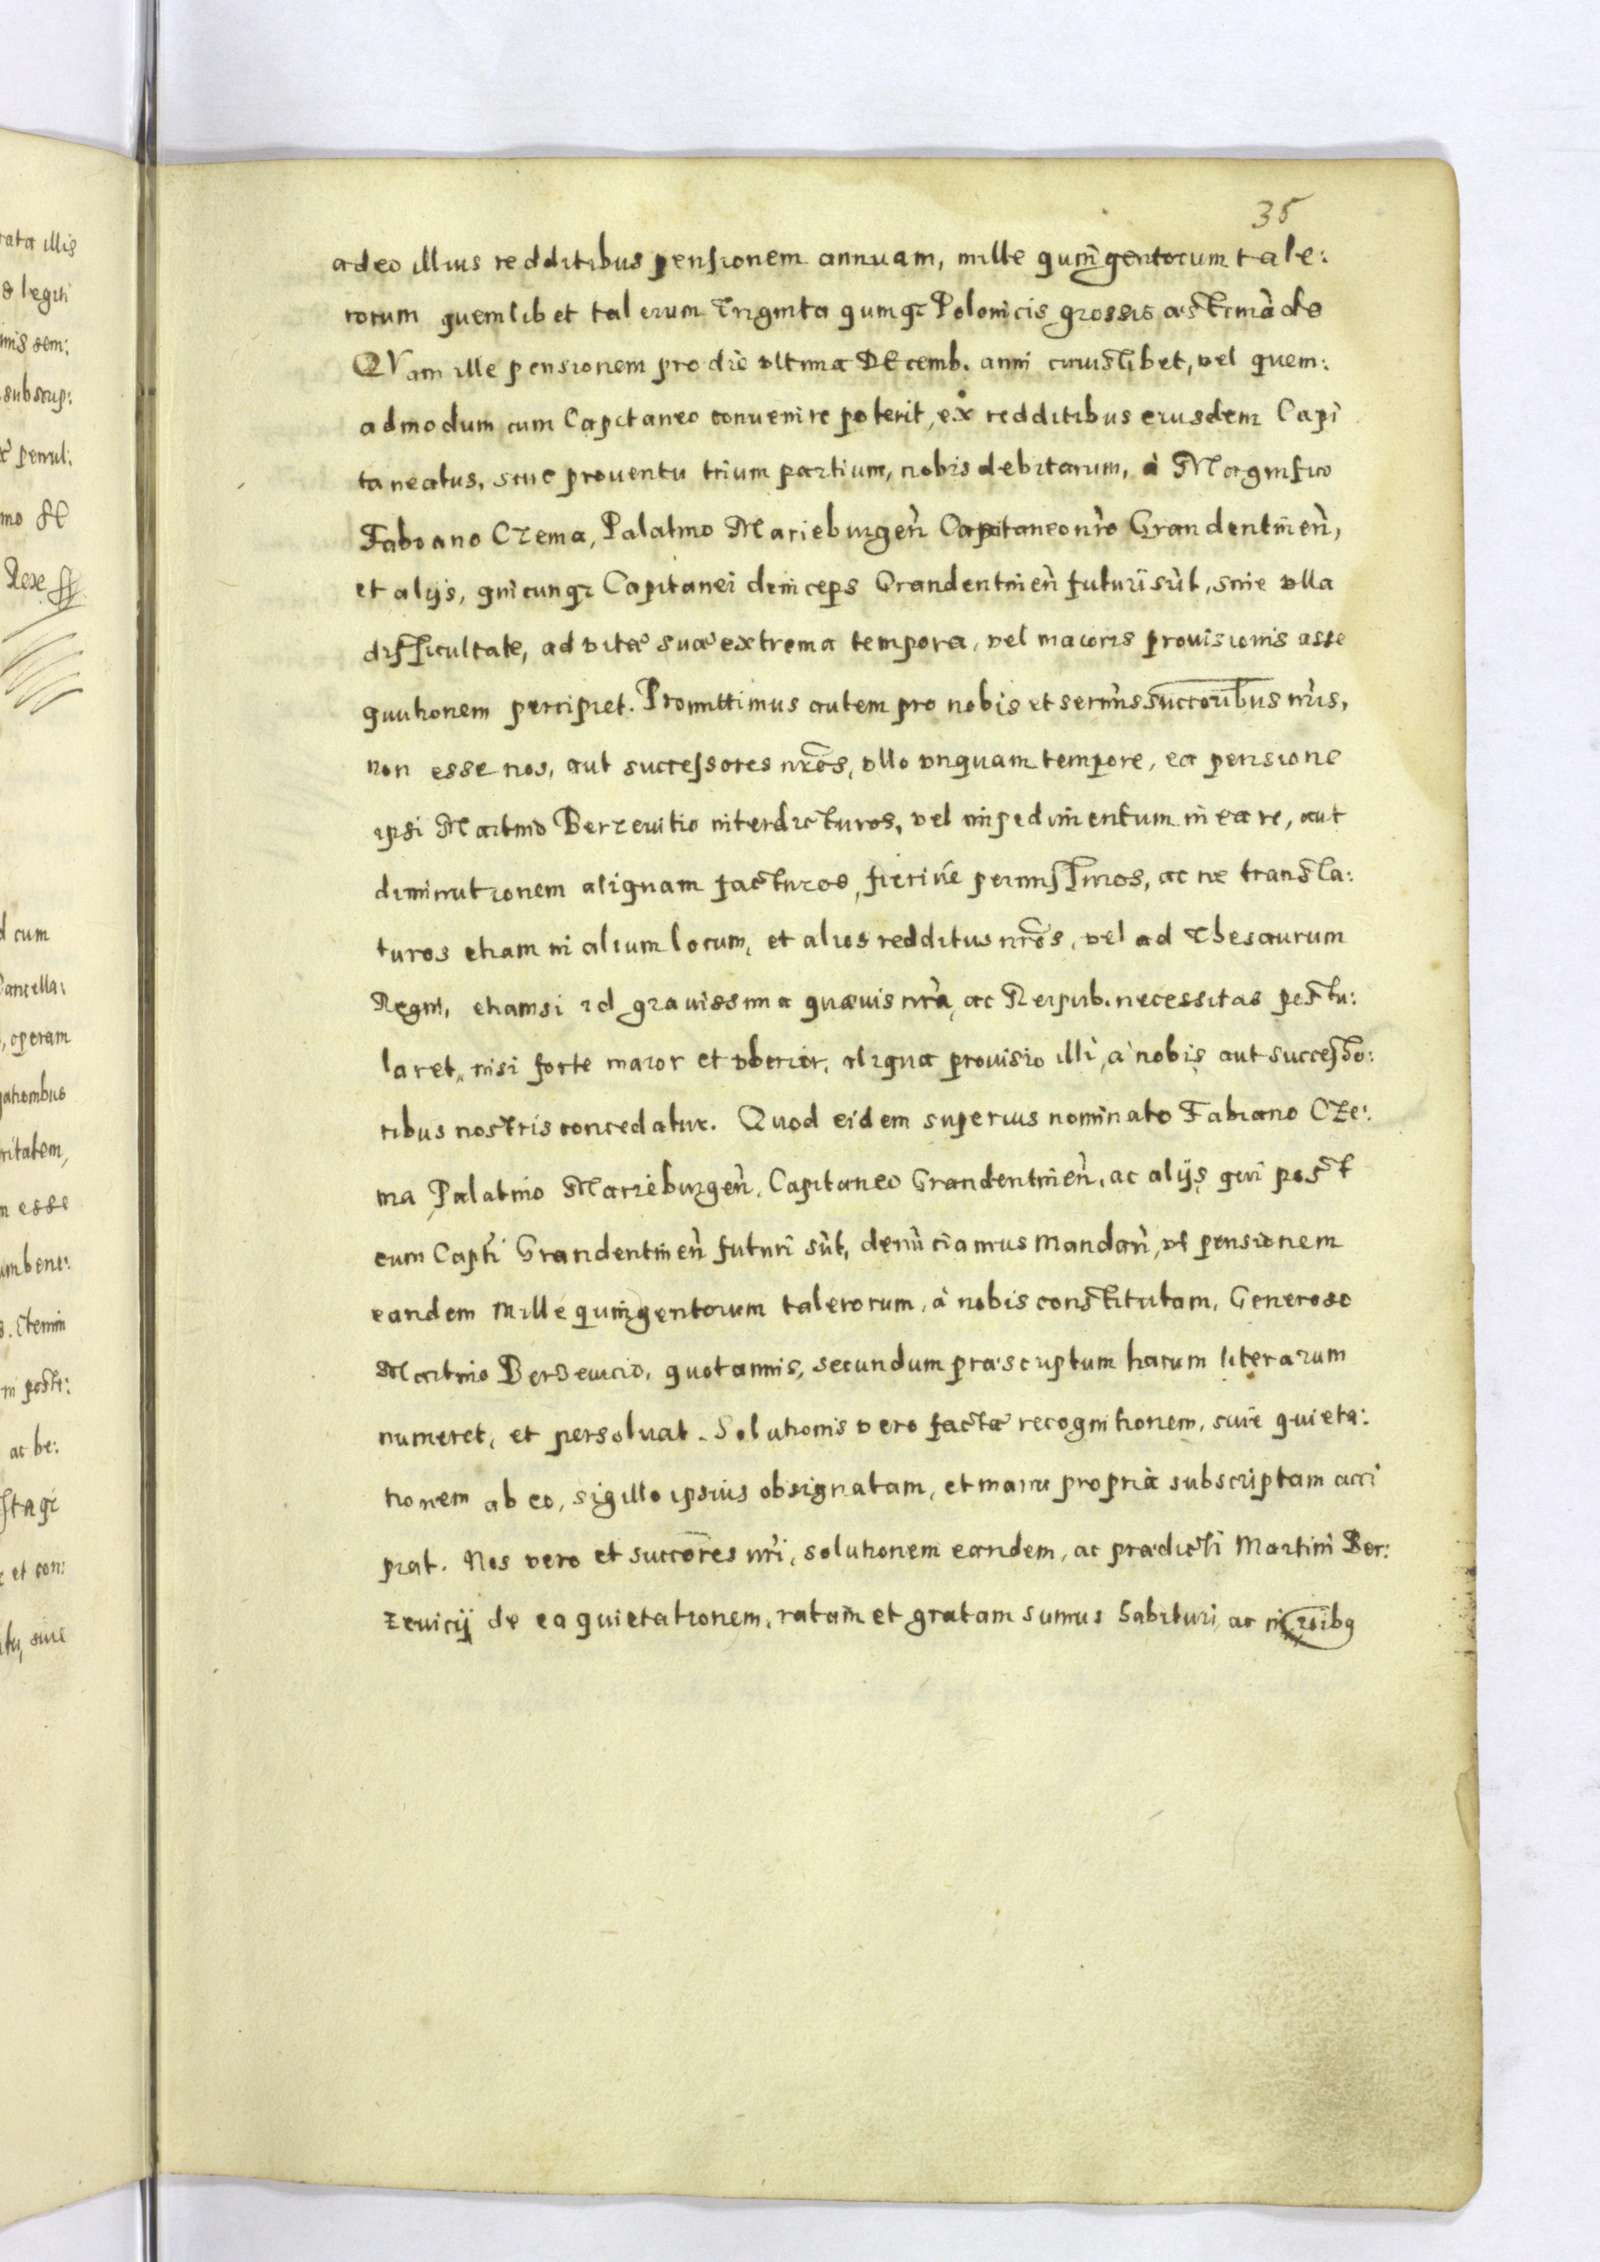 35
adeo illius redditibus pensionem annuam, mille quingentorum tale:
rorum quemlibet talerum triginta quinqz Polonicis grossis æstimãdo
QVam ille pensionem pro die vltima DEcemb. anni cuiuslibet, vel quem:
admodum cum Capitaneo conuenire poterit, ex redditibus eiusdem Capi
taneatus, siue prouentu trium partium, nobis debitarum, à Magnifico
Fabiano Czema, Palatino Marieburgeñ Capitaneo nr̃o Grandentineñ,
et alijs, quicunqz Capitanei deinceps Grandentineñ futuri sũt, sine vlla
difficultate, ad vitæ suæ extrema tempora, vel maioris prouisionis asse
quutionem percipiet. Promittimus autem pro nobis et serm̃is succoribus nr̃is,
non esse nos, aut successores nr̃os, vllo vnquam tempore, ea pensione
ipsi Martino Berzeuitio interdicturos, vel impedimentum in ea re, aut
diminutionem aliquam facturos, fieriue permissuros, ac ne transla:
turos etiam in alium locum, et alios redditus nr̃os, vel ad Thesaurum
Regni, etiamsi id grauissima quæuis nr̃a, ac Reipub. necessitas postu:
laret, nisi forte maior et vberior, aliqua prouisio illi, à nobis aut successo:
ribus nostris concedatur. Quod eidem superius nominato Fabiano Cze:
ma Palatino Marieburgeñ, Capitaneo Grandentineñ, ac alijs qui post
eum Capti Grandentineñ futuri sũt, denũciamus mandañ, vt pensionem
eandem mille quingentorum talerorum, à nobis constitutam, Generoso
Martino Berseuicio, quotannis, secundum præscriptum harum literarum
numeret, et persoluat. Solutionis vero factæ recognitionem, siue quieta:
tionem ab eo, sigillo ipsius obsignatam, et manu propria subscriptam acci
piat. Nos vero et succores nr̃i, solutionem eandem, ac prædicti Martini Ber:
zeuicij de ea quietationem, ratam et gratam sumus habituri, ac in
rata illis
legiti
sem:
subscrip:
Rex
cum
Cancella:
operam
ritatem,
esse
Etenim
ac be:
et con:
siue